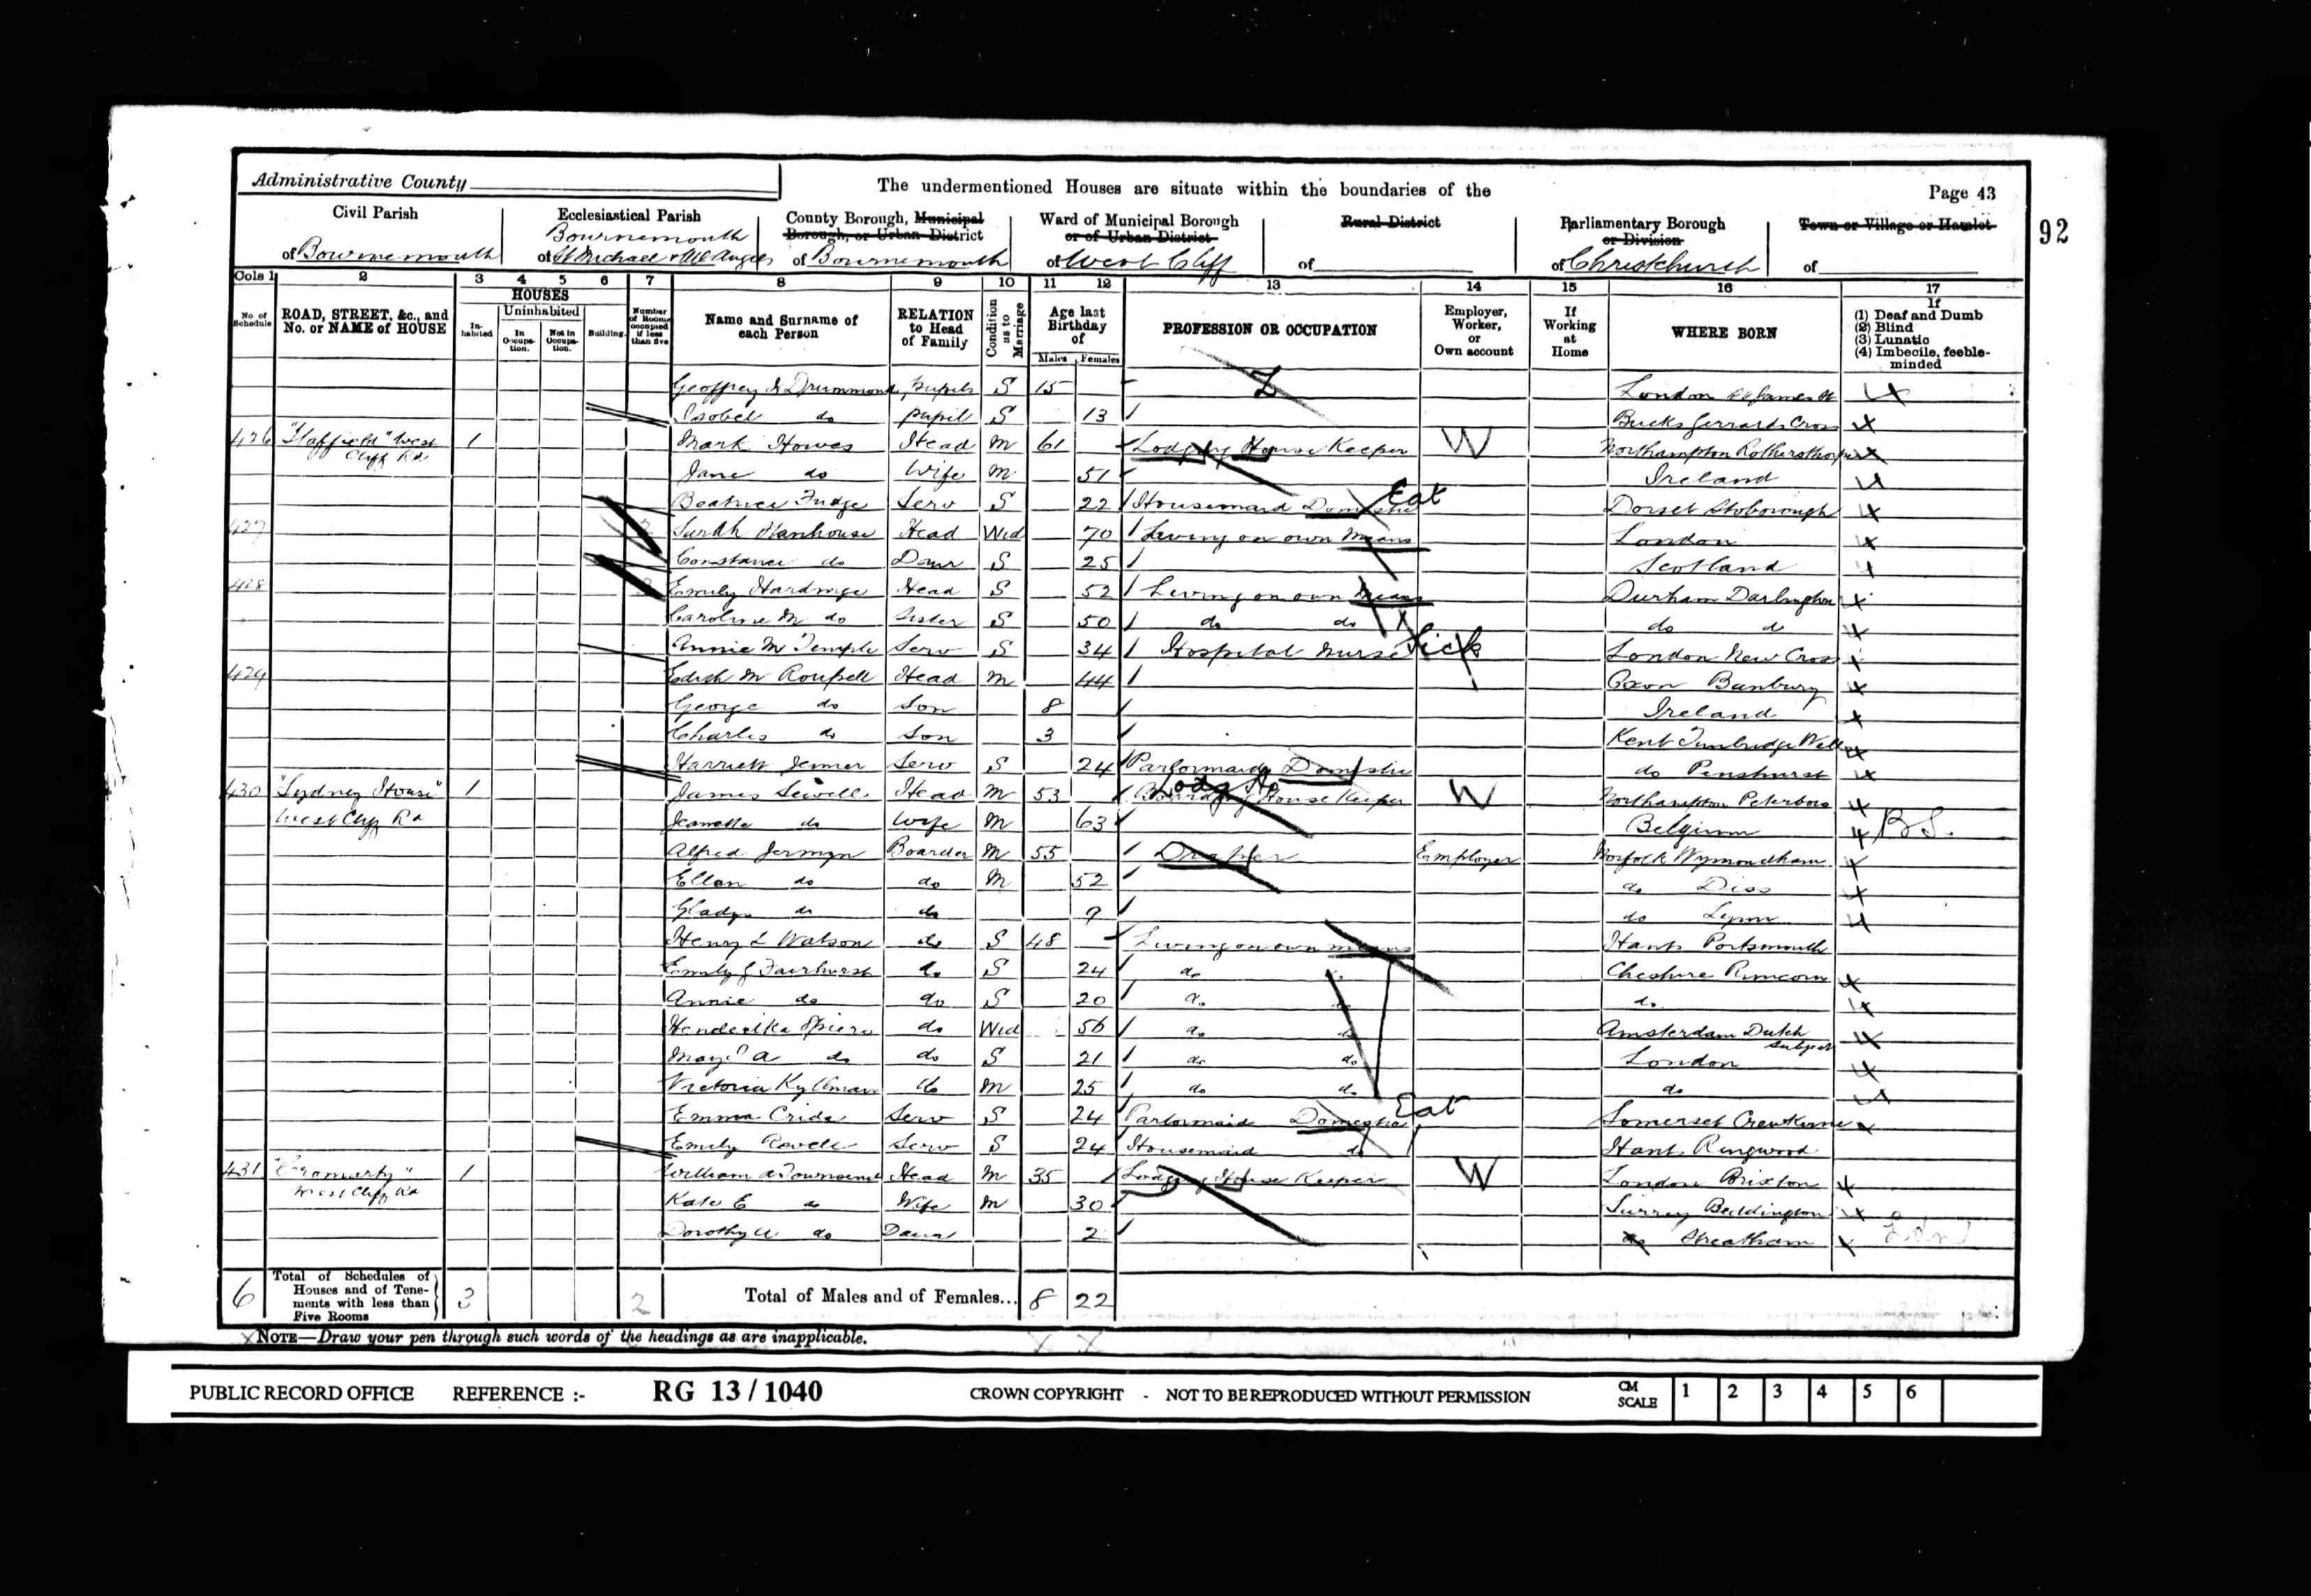 Administrative County
The undermentioned Houses are situate within the boundaries of the
Page 43
92
Civil Parish
of Bournemouth
Ecclesiastical Parish
Bournemouth
of St Michael & All Angels
County Borough, Municipal
Borough, or Urban District
of Bournemouth
Ward of Municipal Borough
or of Urban District
of West Cliff
Rural District
of
Parliamentary Borough
or Division
of Christchurch
Town or Village or Hamlet
of
Cols 1 2 3 4 5 6 7 8 9 10 11 12 13 14 15 16 17
No. of Schedule
ROAD, STREET, &c., and No. or NAME of HOUSE
HOUSES
In-habited
Uninhabited
In Occupa-tion.
Not in Occupa-tion.
Building.
Number of Rooms occupied if less than five
Name and Surname of each Person
RELATION to Head of Family
Condition as to Marriage
Age last Birthday of
Males Females
PROFESSION OR OCCUPATION
Employer, Worker, or Own account
If Working at Home
WHERE BORN
If
(1) Deaf and Dumb
(2) Blind
(3) Lunatic
(4) Imbecile, feeble-minded
Geoffrey Drummond, Pupils S 15 London St James
Isobel do pupil S 13 Bucks Gerrards Cross
426 West Cliff Rd 1 Mark Howes Head M 61 Lodging House Keeper W Northampton Rothersthorpe
Jane do Wife M 51 Ireland
Beatrice Fudge Serv S 22 Housemaid Domestic Eat Dorset Stoborough
427 Sarah Head Wid 70 Living on own Means London
Constance do Daur S 25 Scotland
428 Emily Hardinge Head S 52 Living on own Means Durham Darlington
Caroline M do Sister S 50 do do do do
Annie M Temple Serv S 34 Hospital Nurse Sick London New Cross
429 Edith M Roupell Head M 44 Oxon Banbury
George do Son 8 Ireland
Charles do Son 3 Kent Tunbridge Wells
Harriett Jenner Serv S 24 Parlormaid Domestic do Penshurst
430 "Sydney House" West Cliff Rd 1 James Sewell Head M 53 Boarding House Keeper Lodg Ho W Northampton Peterboro
Jeanette do Wife M 63 Belgium B S.
Alfred Jermyn Boarder M 55 Draper Employer Norfolk Wymondham
Ellen do do M 52 do Diss
Gladys do do 9 do Lynn
Henry L Watson do S 48 Living on own means Hants Portsmouth
Emily J Fairhurst do S 24 do Cheshire Runcorn
Annie do do S 20 do do
Henderika Spiers do Wid 56 do do Amsterdam Dutch Subject
do do S 21 do do London
Victoria Kyllman do M 25 do do do
Emma Cride Serv S 24 Parlormaid Domestic Eat Somerset Crewkerne
Emily Revell Serv S 24 Housemaid do Hants Ringwood
431 "Cromarty" West Cliff Rd 1 William A Townsend Head M 35 Lodging House Keeper W London Brixton
Kate E do Wife M 30 Surrey Beddington
Dorothy A do Daur 2 do Streatham
6 Total of Schedules of Houses and of Tene-ments with less than Five Rooms 3 2 Total of Males and of Females... 8 22
NOTE—Draw your pen through such words of the headings as are inapplicable.
PUBLIC RECORD OFFICE REFERENCE :- RG 13 / 1040 CROWN COPYRIGHT - NOT TO BE REPRODUCED WITHOUT PERMISSION CM SCALE 1 2 3 4 5 6